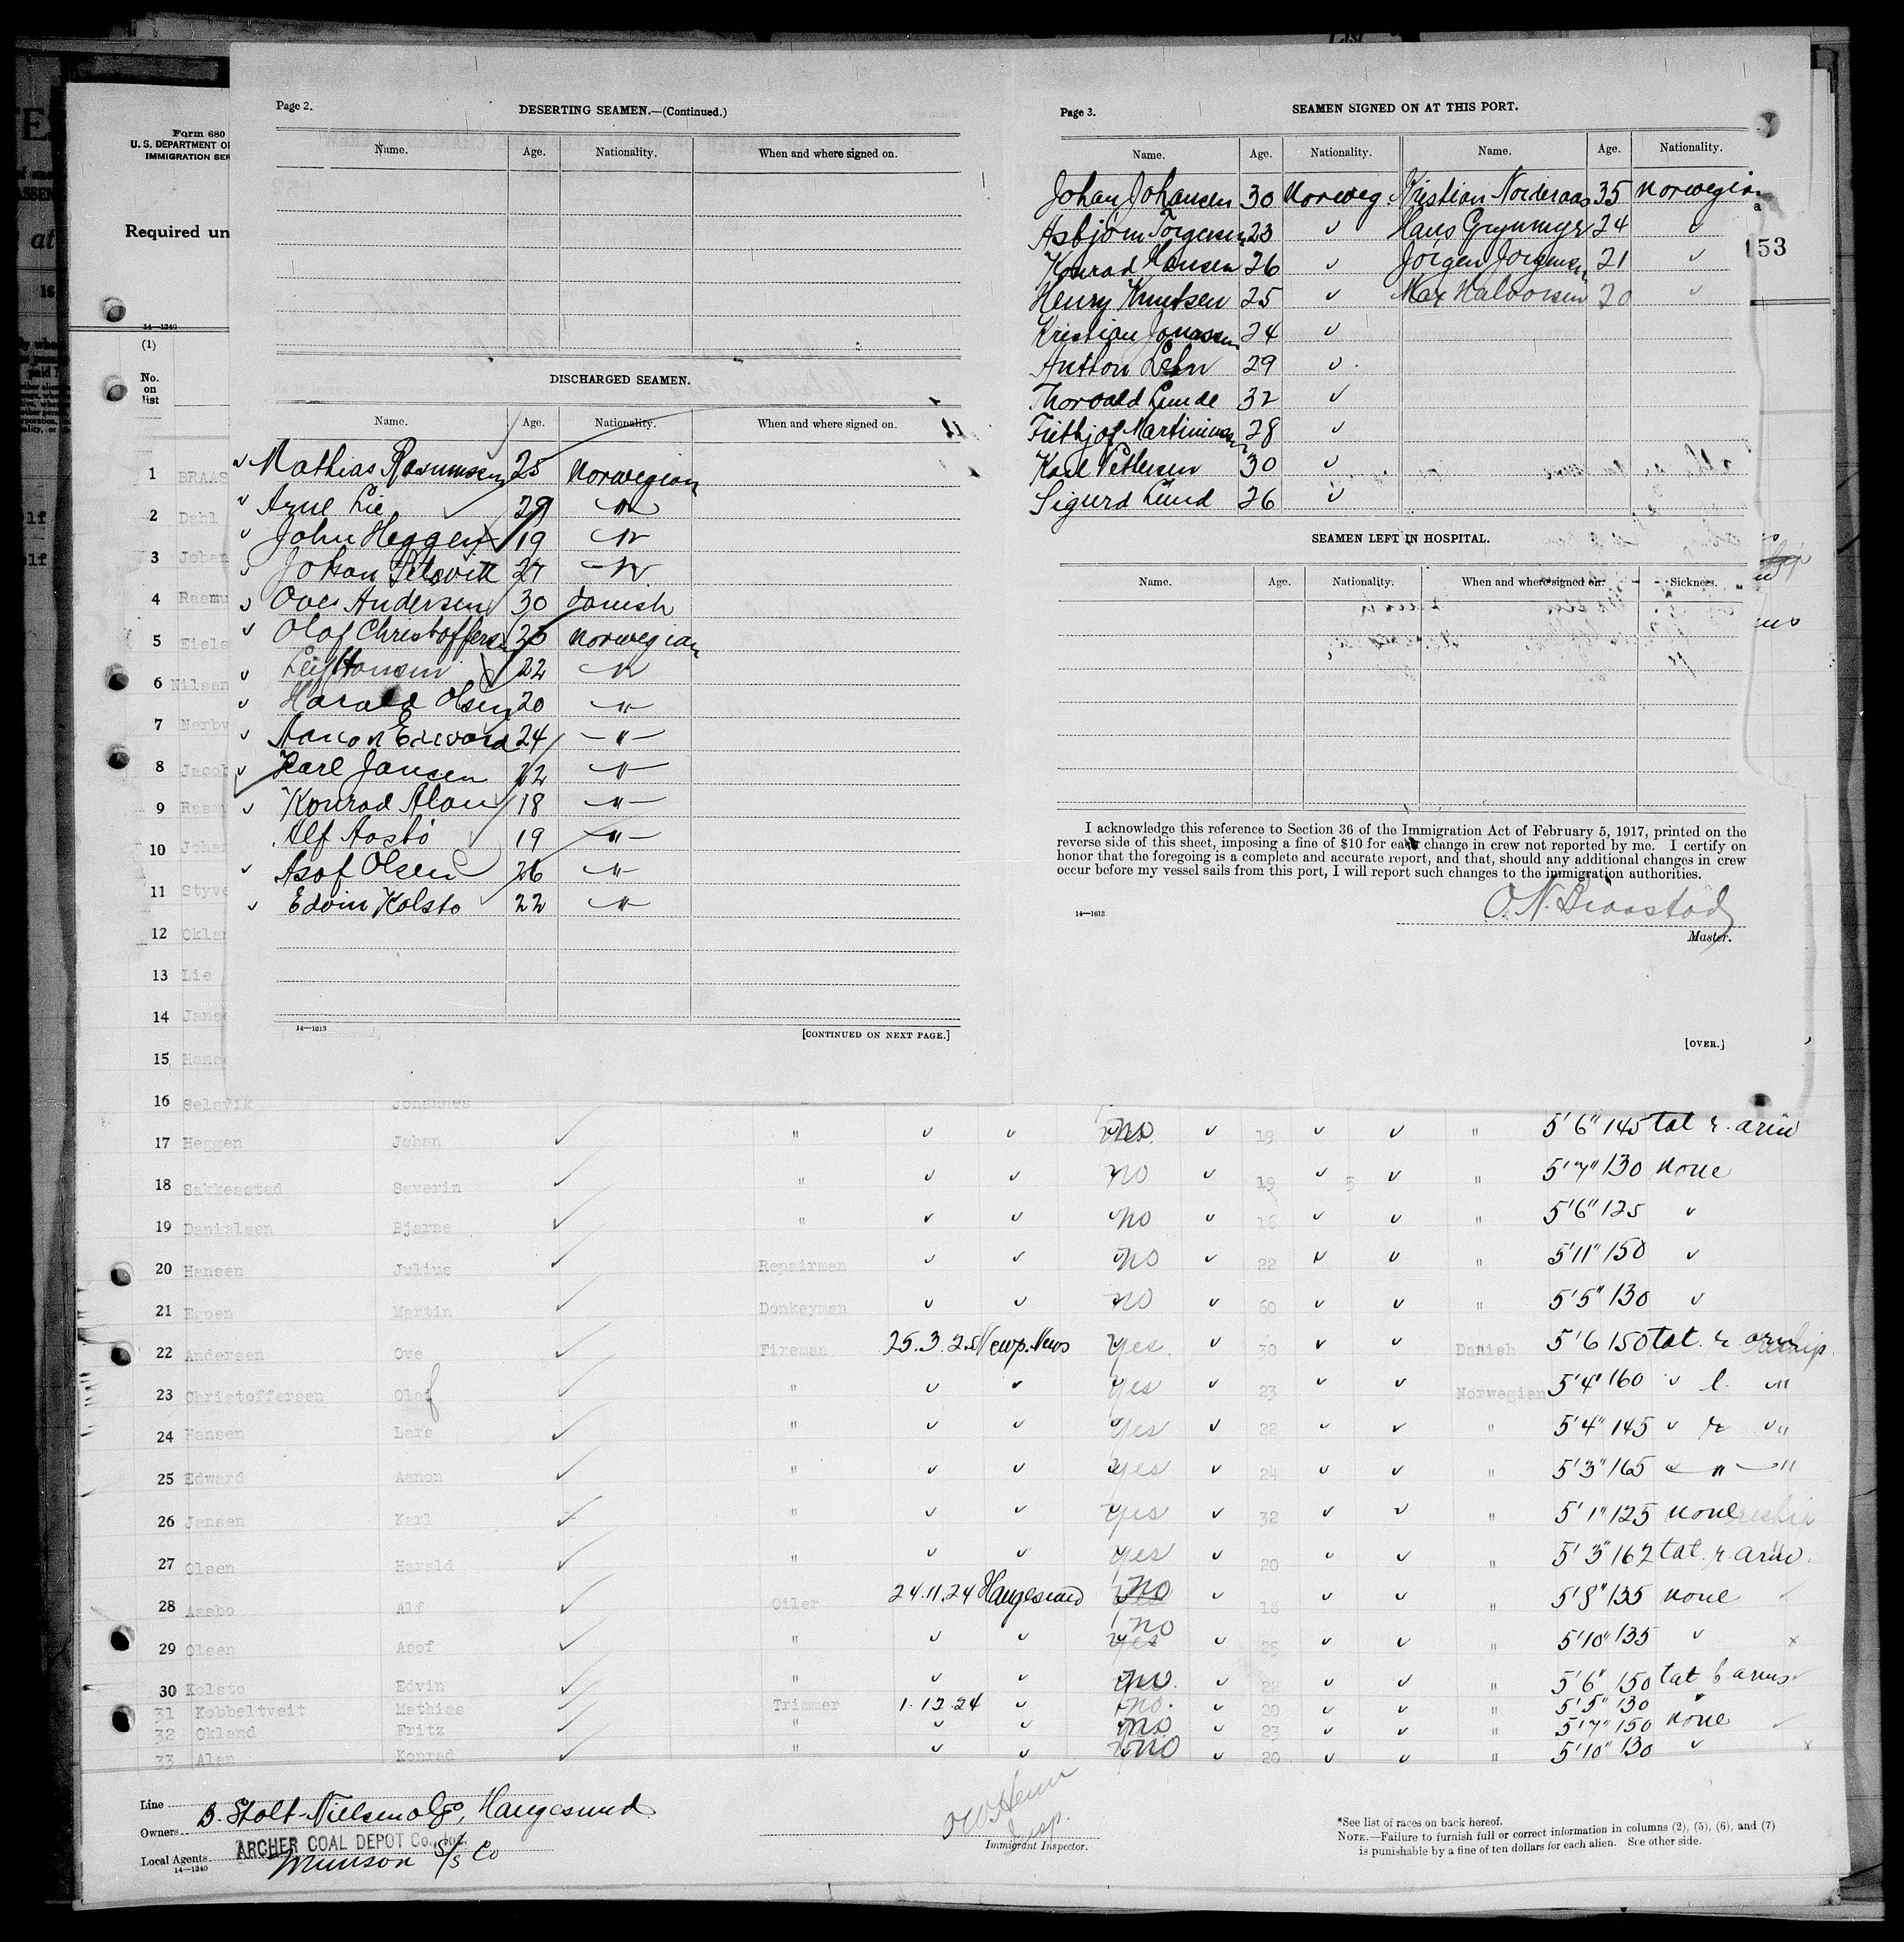 Form 680
U. S. DEPARTMENT OF
IMMIGRATION SER
Required un
14—1240
(1)
No.
on
list
Page 2.
DESERTING SEAMEN.—(Continued.)
Name. Age. Nationality. When and where signed on.
DISCHARGED SEAMEN.
Name. Age. Nationality. When and where signed on.
Mathias Rasmussen 25 Norwegian
Arne Lie 29 "
John Heggen 19 "
Johan 27 "
Ove Andersen 30 Danish
Olaf Christoffersen 23 Norwegian
Leif Hansen 22 "
Harald Olsen 20 —"—
Aanon Edward 24 —"—
Karl Jansen 32 —"—
Konrad Alan 18 —"—
Alf Aasbö 19 —"—
Asof Olsen 26 —"—
Edvin Kolsto 22 —"—
14—1613
[CONTINUED ON NEXT PAGE.]
Page 3.
SEAMEN SIGNED ON AT THIS PORT.
Name. Age. Nationality. Name. Age. Nationality.
Johan Johansen 30 Norweg. Kristian Norderaas 35 Norwegian
Asbjörn Torgersen 23 " Hans 24 "
Konrad Hansen 26 " Jörgen Jörgensen 21 "
Henry Knutsen 25 " Max Halvorsen 20 "
Kristian Jonassen 24 "
Anthon Lehn 29 "
Thorvald Lunde 32 "
Frithjof Martinussen 28 "
Karl Pettersen 30 "
Sigurd Lund 26 "
153
SEAMEN LEFT IN HOSPITAL.
Name. Age. Nationality. When and where signed on. Sickness.
I acknowledge this reference to Section 36 of the Immigration Act of February 5, 1917, printed on the
reverse side of this sheet, imposing a fine of $10 for each change in crew not reported by me. I certify on
honor that the foregoing is a complete and accurate report, and that, should any additional changes in crew
occur before my vessel sails from this port, I will report such changes to the immigration authorities.
14—1613
O. N. Braastad
Master.
[OVER.]
1 BRAAS
2 Dahl
3 Johan
4 Rasmu
5 Eiels
6 Nilsen
7 Nerbv
8 Jacob
9 Rasmu
10 Johan
11 Styve
12 Oklan
13 Lie
14 Janse
15 Hanse
16 Selsvik Johannes
17 Heggen Johan " no 19 " 5'6" 145 tat r. arm
18 Sakkesstad Severin " no 19 5 " 5'7" 130 none
19 Danielsen Bjarne " no 16 " 5'6" 125 "
20 Hansen Julius Repairman no 22 " 5'11" 150 "
21 Egoen Martin Donkeyman no 60 " 5'5" 130 "
22 Andersen Ove Fireman 25.3.25 Newp. News yes 30 Danish 5'6 150 tat. r. arm
23 Christoffersen Olaf " yes 23 Norwegian 5'4" 160 " l. "
24 Hansen Lars " yes 22 " 5'4" 145 " r "
25 Edward Aanon " yes 24 " 5'3" 165 " " "
26 Jansen Karl " yes 32 " 5'1" 125 none
27 Olsen Harald " yes 20 " 5'3" 162 tat. r. arm.
28 Aasbo Alf Oiler 24.11.24 Haugesund no 18 " 5'8" 135 none
29 Olsen Asof " no yes 25 " 5'10" 135 "
30 Kolsto Edvin " no. 22 " 5'6" 150 tat b arms
31 Kobbeltveit Mathias Trimmer 1.12.24 no. 20 " 5'5" 130 "
32 Okland Fritz " no 23 " 5'7" 150 none
33 Alan Konrad " no 20 " 5'10" 130 "
Line
Owners B. Stolt-Nielsen & Co, Haugesund
Local Agents ARCHER COAL DEPOT Co., Inc.
Munson S/S Co
14—1240
Insp.
Immigrant Inspector.
*See list of races on back hereof.
NOTE.—Failure to furnish full or correct information in columns (2), (5), (6), and (7)
is punishable by a fine of ten dollars for each alien. See other side.